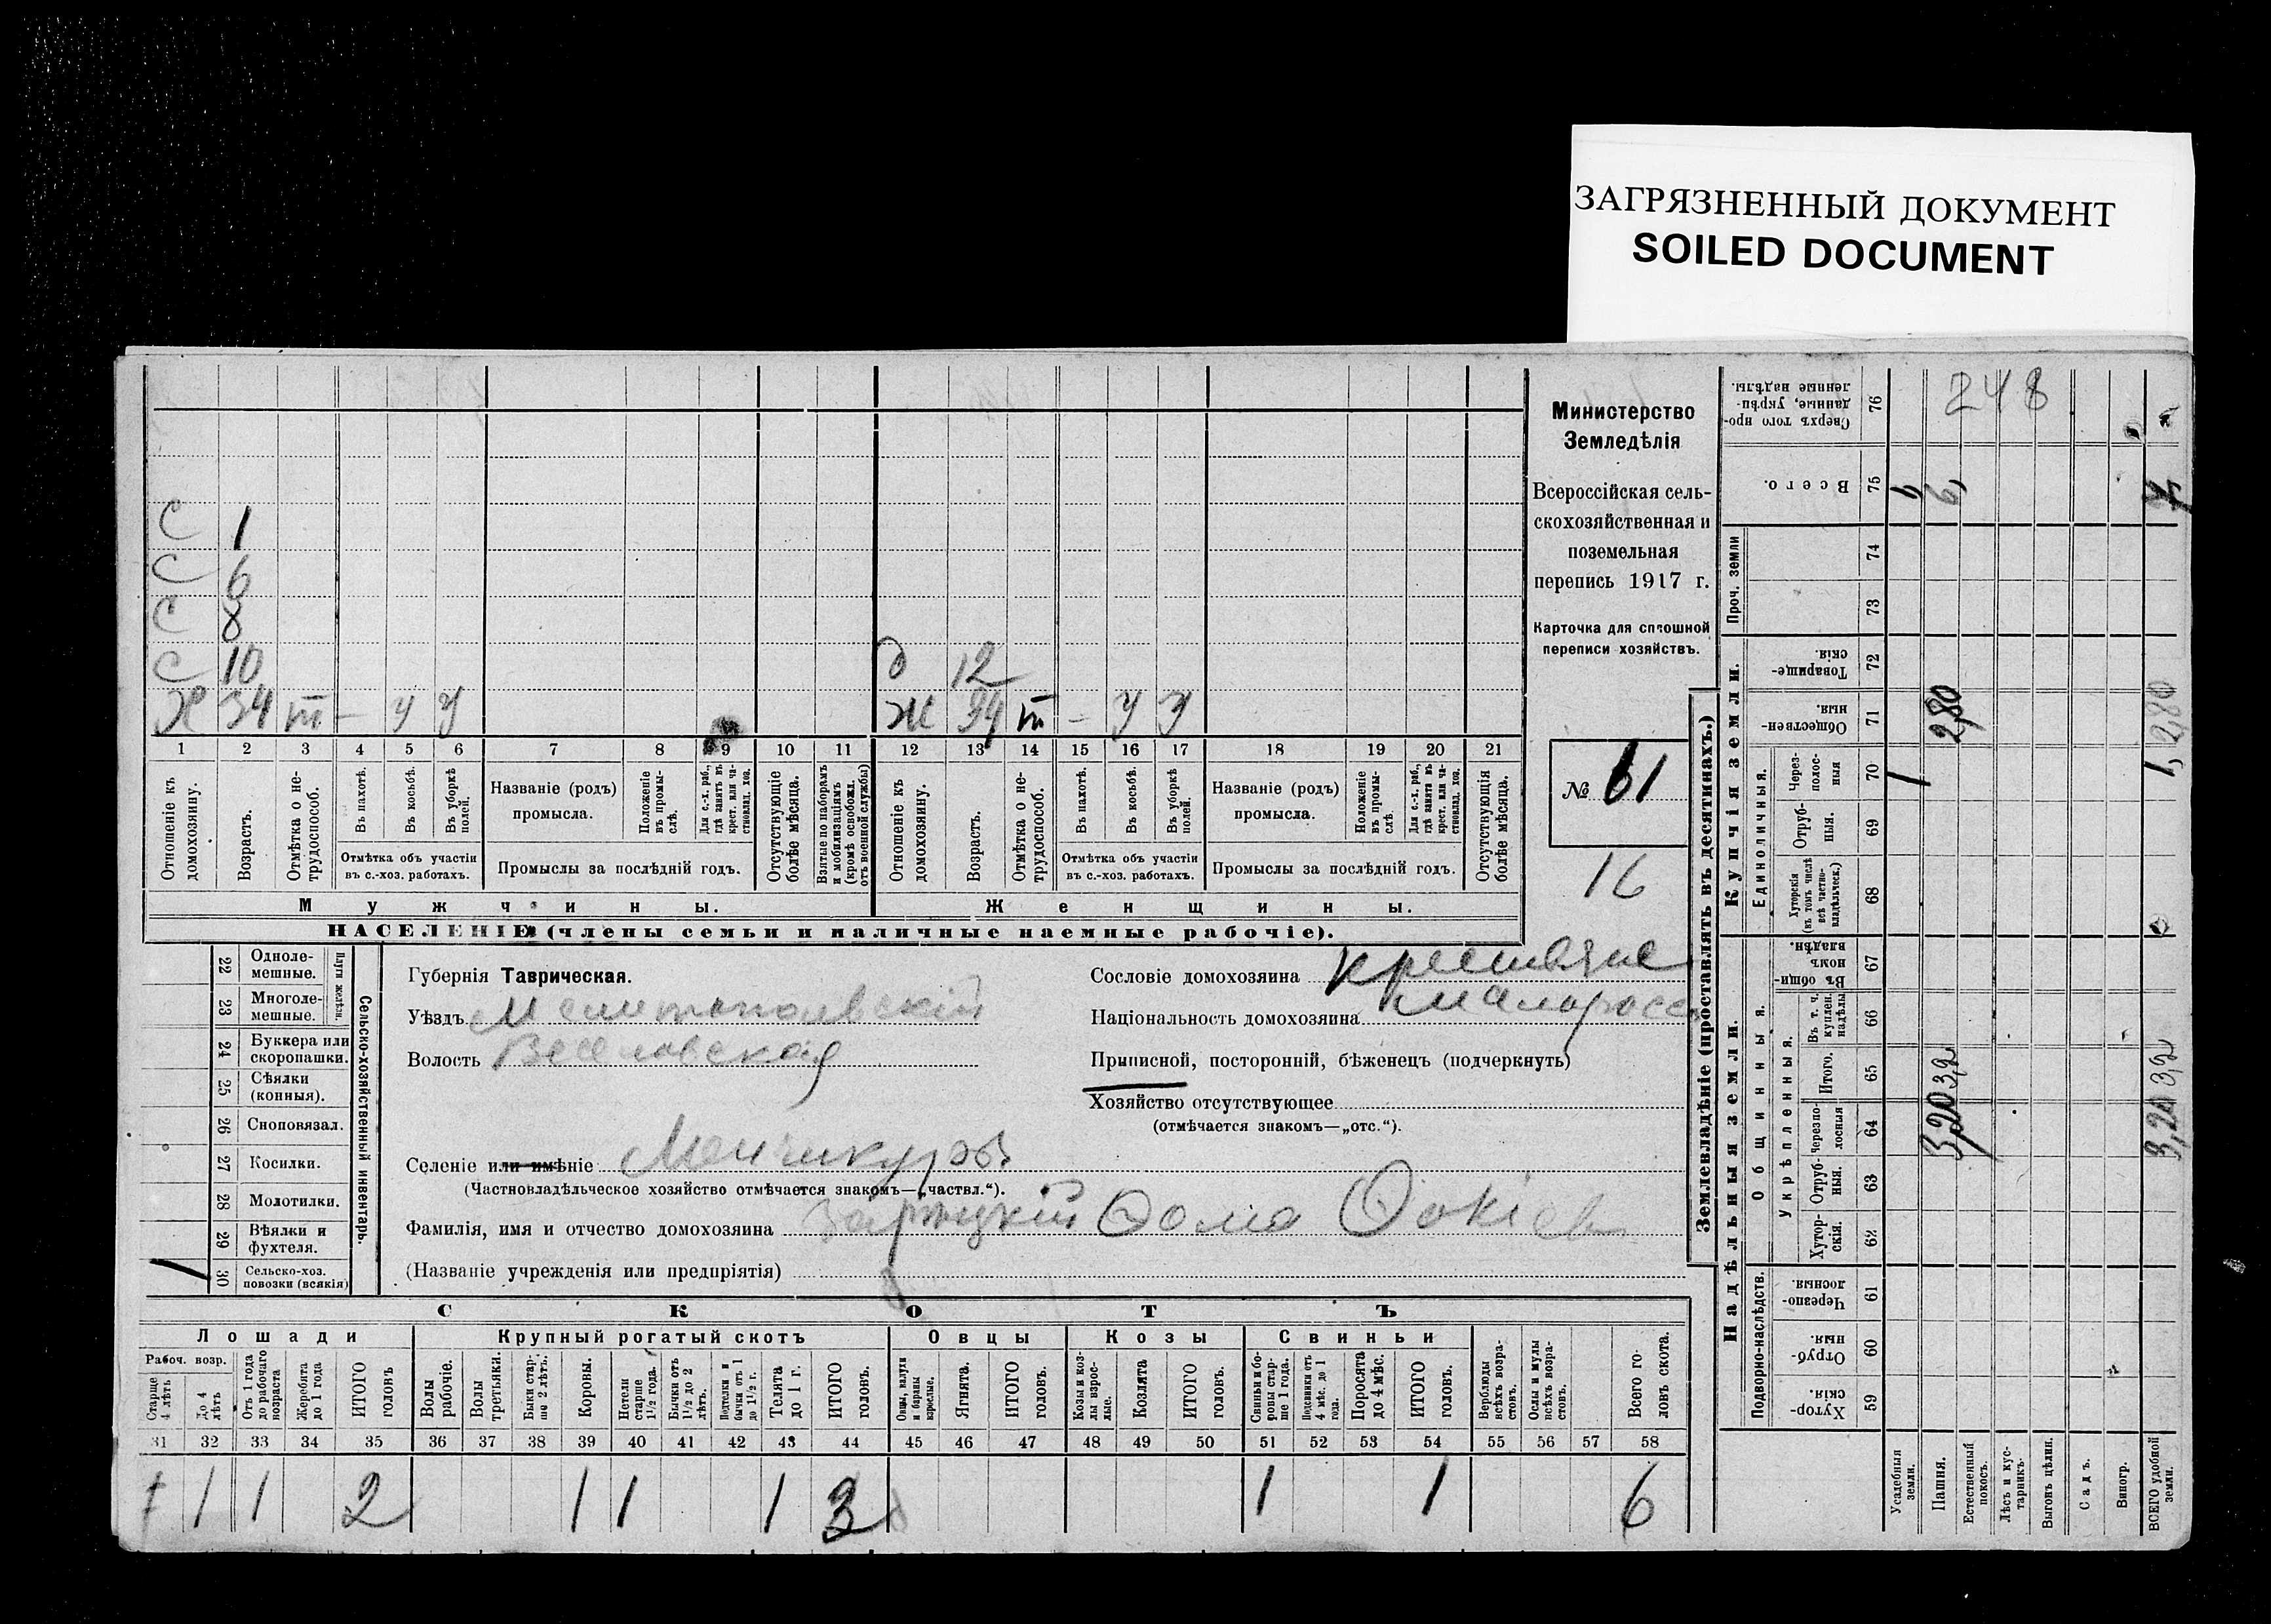 ЗАГРЯЗНЕННЫЙ ДОКУМЕНТ
SOILED DOCUMENT
С 1
С 6
С 8
С 10
д 12
Х 34 m – У У
Ж 34 m – У У
1 2 3 4 5 6 7 8 9 10 11 12 13 14 15 16 17 18 19 20 21
Отношеніе къ домохозяину.
Возрастъ.
Отмѣтка о не-трудоспособ.
Въ пахотѣ.
Въ косьбѣ.
Въ уборкѣ полей.
Отмѣтка объ участіи
въ с.-хоз. работахъ.
Названіе (родъ)
промысла.
Положеніе въ промы-слѣ.
Для с.-х. раб., гдѣ занятъ въ крест. или ча-стновлад. хоз.
Промыслы за послѣдній годъ.
Отсутствующіе болѣе мѣсяца.
Взятые по наборамъ и мобилизаціямъ (кромѣ освобожд. отъ военной службы)
Отношеніе къ домохозяину.
Возрастъ.
Отмѣтка о не-трудоспособ.
Въ пахотѣ.
Въ косьбѣ.
Въ уборкѣ полей.
Отмѣтка объ участіи
въ с.-хоз. работахъ.
Названіе (родъ)
промысла.
Положеніе въ промы-слѣ.
Для с.-х. раб., гдѣ занята въ крест. или ча-стновлад. хоз.
Промыслы за послѣдній годъ.
Отсутствующія болѣе мѣсяца.
Мужчины.
Женщины.
НАСЕЛЕНІЕ (члены семьи и наличные наемные рабочіе).
Министерство
Земледѣлія
Всероссійская сель-
скохозяйственная и
поземельная
перепись 1917 г.
Карточка для сплошной
переписи хозяйствъ.
№ 61
16
22 Одноле-мешные.
23 Многоле-мешные.
Плуги желѣзн.
24 Буккера или скоропашки.
25 Сѣялки (конныя).
26 Сноповязал.
27 Косилки.
28 Молотилки.
29 Вѣялки и фухтеля.
30 Сельско-хоз. повозки (всякія)
Сельско-хозяйственный инвентарь.
Губернія Таврическая.
Уѣздъ Мелитопольскій
Волость Веселовская
Сословіе домохозяина крестьяне
Національность домохозяина малоросс
Приписной, посторонній, бѣженецъ (подчеркнуть)
Хозяйство отсутствующее
(отмѣчается знакомъ—„отс.“).
Селеніе или имѣніе Менчикуры
(Частновладѣльческое хозяйство отмѣчается знакомъ—„частвл.“).
Фамилія, имя и отчество домохозяина Зарицкій Фома
(Названіе учрежденія или предпріятія)
СКОТЪ
Лошади
Крупный рогатый скотъ
Овцы
Козы
Свиньи
Рабоч. возр.
Старше 4 лѣтъ
До 4 лѣтъ
Отъ 1 года до рабочаго возраста
Жеребята до 1 года
ИТОГО головъ
Волы рабочіе.
Волы третьяки.
Быки стар-ше 2 лѣтъ.
Коровы.
Нетели старше 1½ года.
Бычки отъ 1½ до 2 лѣтъ.
Подтелки и бычки отъ 1 до 1½ г.
Телята до 1 г.
ИТОГО головъ.
Овцы, валухи и бараны взрослые.
Ягнята.
ИТОГО головъ.
Козы и коз-лы взрос-лые.
Козлята
ИТОГО головъ.
Свиньи и бо-ровы стар-ше 1 года.
Подсвинки отъ 4 мѣс. до 1 года.
Поросята до 4 мѣс.
ИТОГО головъ.
Верблюды всѣхъ возра-стовъ.
Ослы и мулы всѣхъ возра-стовъ.
Всего го-ловъ скота.
31 32 33 34 35 36 37 38 39 40 41 42 43 44 45 46 47 48 49 50 51 52 53 54 55 56 57 58
1 1 2 1 1 1 3 1 1 6
Землевладѣніе (проставлять въ десятинахъ.)
Надѣльныя земли.
Купчія земли.
Подворно-наслѣдств.
Общинныя.
Укрѣпленныя.
Единоличныя.
Проч. земли
Сверхъ того про-данные, укрѣп-ленные надѣлы. 76
Всего. 75
74
73
Товарище-скія. 72
Обществен-ныя. 71
Через-полос-ныя 70
Отруб-ныя. 69
Хуторскія (въ томъ числѣ всѣ частно-владѣльческ.) 68
Въ общи-номъ владѣн. 67
Въ т. ч. куплен. надѣлы 66
Итого. 65
Черезпо-лосныя 64
Отруб-ныя. 63
Хутор-скія. 62
Черезпо-лосныя 61
Отруб-ныя. 60
Хутор-скія. 59
248
2,80
1
3,20
3,2
1, 2,80
3,20 3,2
Усадебныя земли.
Пашня.
Естественный покосъ.
Лѣсъ и кус-тарникъ.
Выгонъ цѣлин.
Садъ.
Виногр.
ВСЕГО удобной земли.